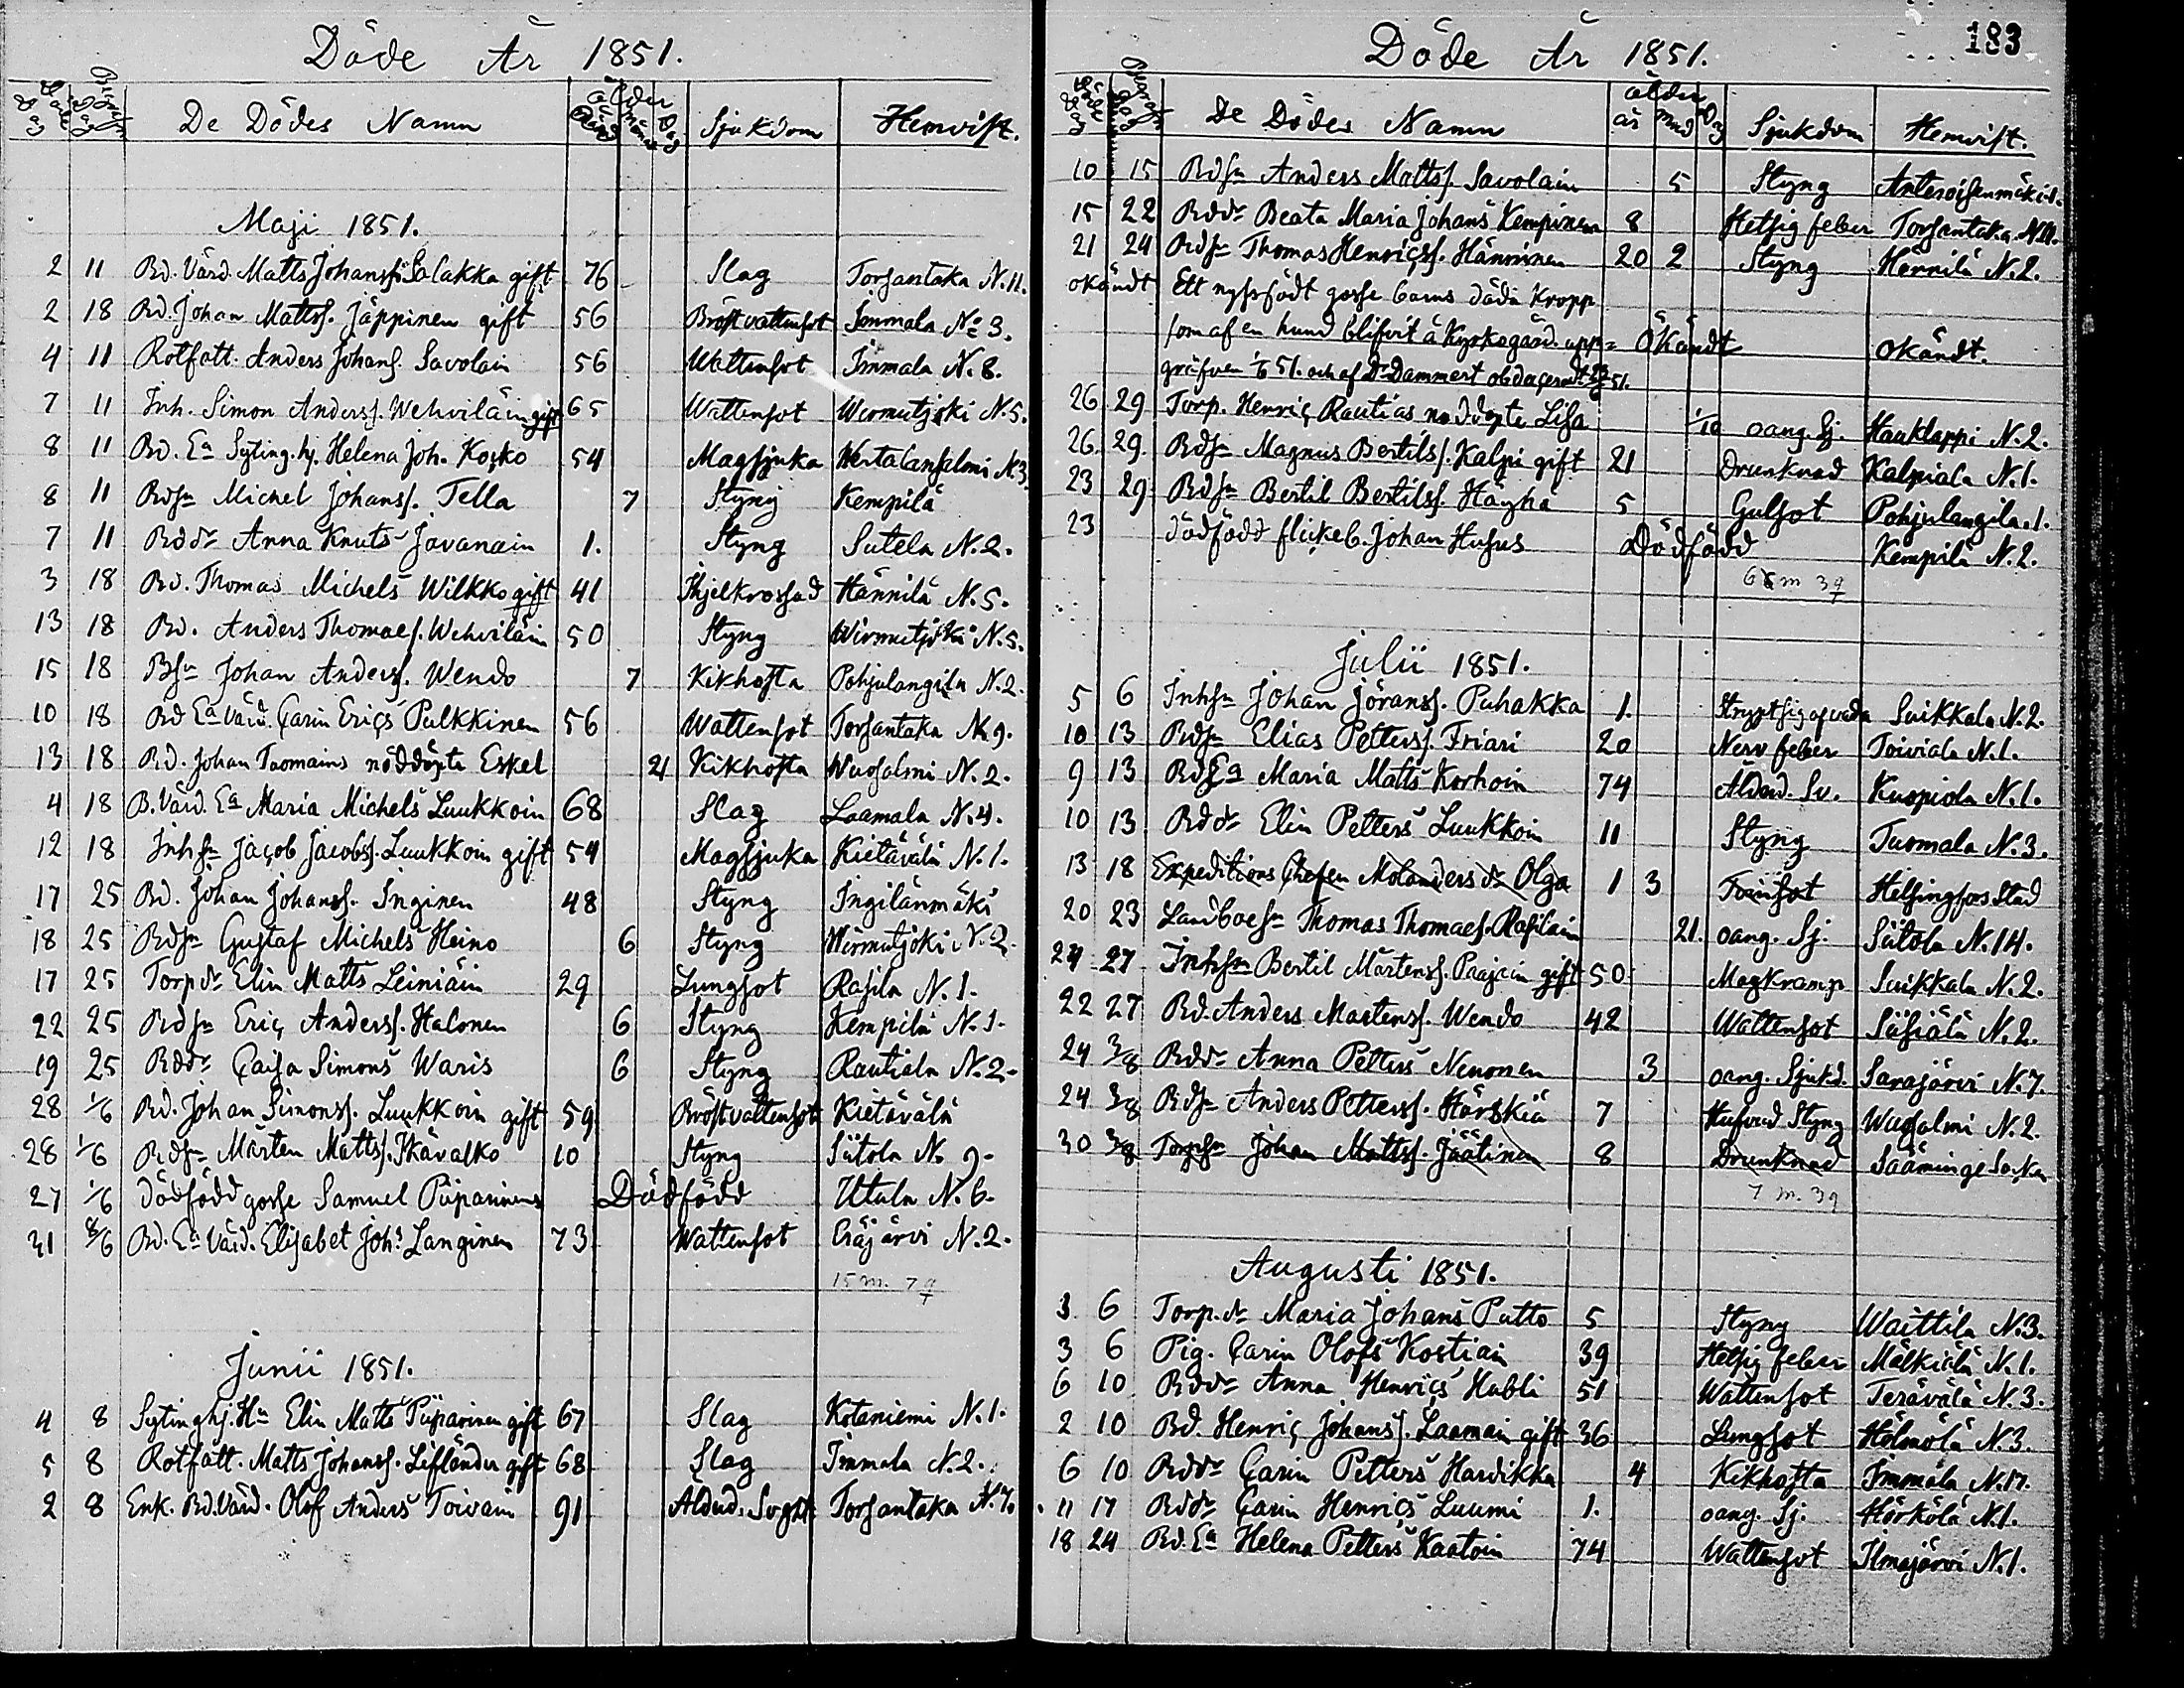 Döde År 1851.
De Dödes Namn Sjukdom Hemvist.
Maji 1851.
2 11 Bd. Värd. Matts Johanss. Salakka gift 76 Slag Torsantaka N. 11.
2 18 Bd. Johan Mattss. Jäppinen gift 56 Bröstvattensot Immala No 3.
4 11 Rotfatt. Anders Johans. Savolain 56 Wattensot Immala N. 8.
7 11 Inh. Simon Anderss. Wehviläin gift 65 Wattensot Wirmutjoki N. 5.
8 11 Bd. Ea Syting.hj. Helena Joh. Kosko 54 Magsjuka N3.
8 11 Bdsn Michel Johanss. Tella 7 Styng Kempilä
7 11 Bddr Anna Knuts Javanain 1. Styng Sutela N. 2.
3 18 Bd. Thomas Michels Wilkko gift 41 Ihjelkrossad Hännilä N. 5.
13 18 Bd. Anders Thomaes. Wehviläin 50 Styng Wirmutjoki N. 5.
15 18 Bsn Johan Anderss. Wendo 7 Kikhosta Pohjalangila N. 2.
10 18 Bd Ea Värd. Carin Erics Pulkkinen 56 Wattensot Torsantaka N. 9.
13 18 Bd. Johan Taomains nöddöpte Eskel 21 Kikhosta Wuosalmi N. 2.
4 18 B. Värd. Ea Maria Michels Luukkoin 68 Slag Laamala N. 4.
12 18 Inhsn Jacob Jacobss. Luukkoin gift 54 Magsjuka Kietävälä N. 1.
17 25 Bd. Johan Johanss. Inginen 48 Styng Ingilänmäki
18 25 Bdsn Gustaf Michels Heino 6 Styng Wirmutjoki N. 2.
17 25 Torpdr Elin Matts Leiniäin 29 Lungsot Rasila N. 1.
22 25 Bdsn Eric Anderss. Halonen 6 Styng Kempilä N. 1.
19 25 Bddr Caisa Simons Waris 6 Styng Rautiala N. 2.
28 1/6 Bd. Johan Simonss. Luukkoin gift 59 Bröstvattensot Kietävälä
28 1/6 Bdsn Mårten Mattss. Ikävalko 10 Styng Siitola No 9.
27 1/6 Dödfödd gosse Samuel Piiparinens Dödfödd Utula N. 6.
31 8/6 Bd. Ea Värd. Elisabet Johs Langinen 73 Wattensot Eräjärvi N. 2.
15 m. 7 q
Junii 1851.
4 8 Sytinghj. Hu Elin Matts Piiparinen gift 67 Slag Kotaniemi N. 1.
5 8 Rotfatt. Matts Johanss. Lifländer gift 68 Slag Immala N. 2.
2 8 Enk. Bd. Värd. Olof Anders Toivain 91 Torsantaka N. 7.
Döde År 1851. 183
De Dödes Namn ålder år mnd Dag Sjukdom Hemvist.
10 15 Bdsn Anders Mattss. Savolain 5 Styng
15 22 Bddr Beata Maria Johans Kempinen 8 Hetsig feber Torsantaka
21 24 Bdsn Thomas Henricss. Hänninen 20 2 Styng Hännilä N. 2.
okändt Ett nyssfödt gosse barns döda kropp
som af en hund blifvit å kyrkogård. upp= okändt okändt.
gräfven 51. och af Dr Dammert 51.
26 29 Torp. Henric Rautias nöddöpte Lisa 1/10 oang. Sj. Hauklappi N. 2.
26 29 Bdsn Magnus Bertilss. Kalpi gift 21 Drunknad Kalpiala N. 1.
23 29 Bdsn Bertil Bertilss. Häyhä 5 Gulsot Pohjalangila. 1.
23 dödfödd flickeb. Johan Husus Dödfödd Kempilä N. 2.
6 m 3 q
Julii 1851.
5 6 Inhsn Johan Jöranss. Puhakka 1. Suikkala N. 2.
10 13 Bdsn Elias Petterss. Friari 20 Nerv feber Toiviala N. 1.
9 13 Bd Ea Maria Matts Korhoin 74 Ålderd. Sv. Kuopiola N. 1.
10 13 Bddr Elin Petters Luukkoin 11 Styng Tuomala N. 3.
13 18 Expeditions Chefen Molanders dr Olga 1 3 Helsingfors Stad
20 23 Landboesn Thomas Thomaes. Rasilain 21. oang. Sj. Siitola N. 14.
24 27 Inhsn Bertil Mårtenss. Paajain gift 50 Magkramp Suikkala N. 2.
22 27 Bd. Anders Martenss. Wendo 42 Wattensot Siisiälä N. 2.
24 3/8 Bddr Anna Petters Nenonen 3 oang. Sjukd. Sarajärvi N. 7.
24 3/8 Bdsn Anders Petterss. Härskiä 7 Hufvud Styng Wuosalmi N. 2.
30 3/8 Torpsn Johan Mattss. Jäätinen 8 Drunknad Sääminge Socken
7 m. 3 q
Augusti 1851.
3 6 Torp. dr Maria Johans Putto 5 Styng Waittila N. 3.
3 6 Pig. Carin Olofs Kostiain 39 Hetsig feber Mälkiälä N. 1.
6 10 Bddr Anna Henrics Hubli 51 Wattensot Terävälä N. 3.
2 10 Bd. Henric Johanss. Laamain gift 36 Lungsot Hölmölä N. 3.
6 10 Bddr Carin Petters Hardikka 4 Kikhosta Immala N. 17.
11 17 Bddr Carin Henrics Luumi 1. oang. Sj. Hörkölä N. 1.
18 24 Bd. Ea Helena Petters Kaatoin 74 Wattensot Ilmajärvi N. 1.